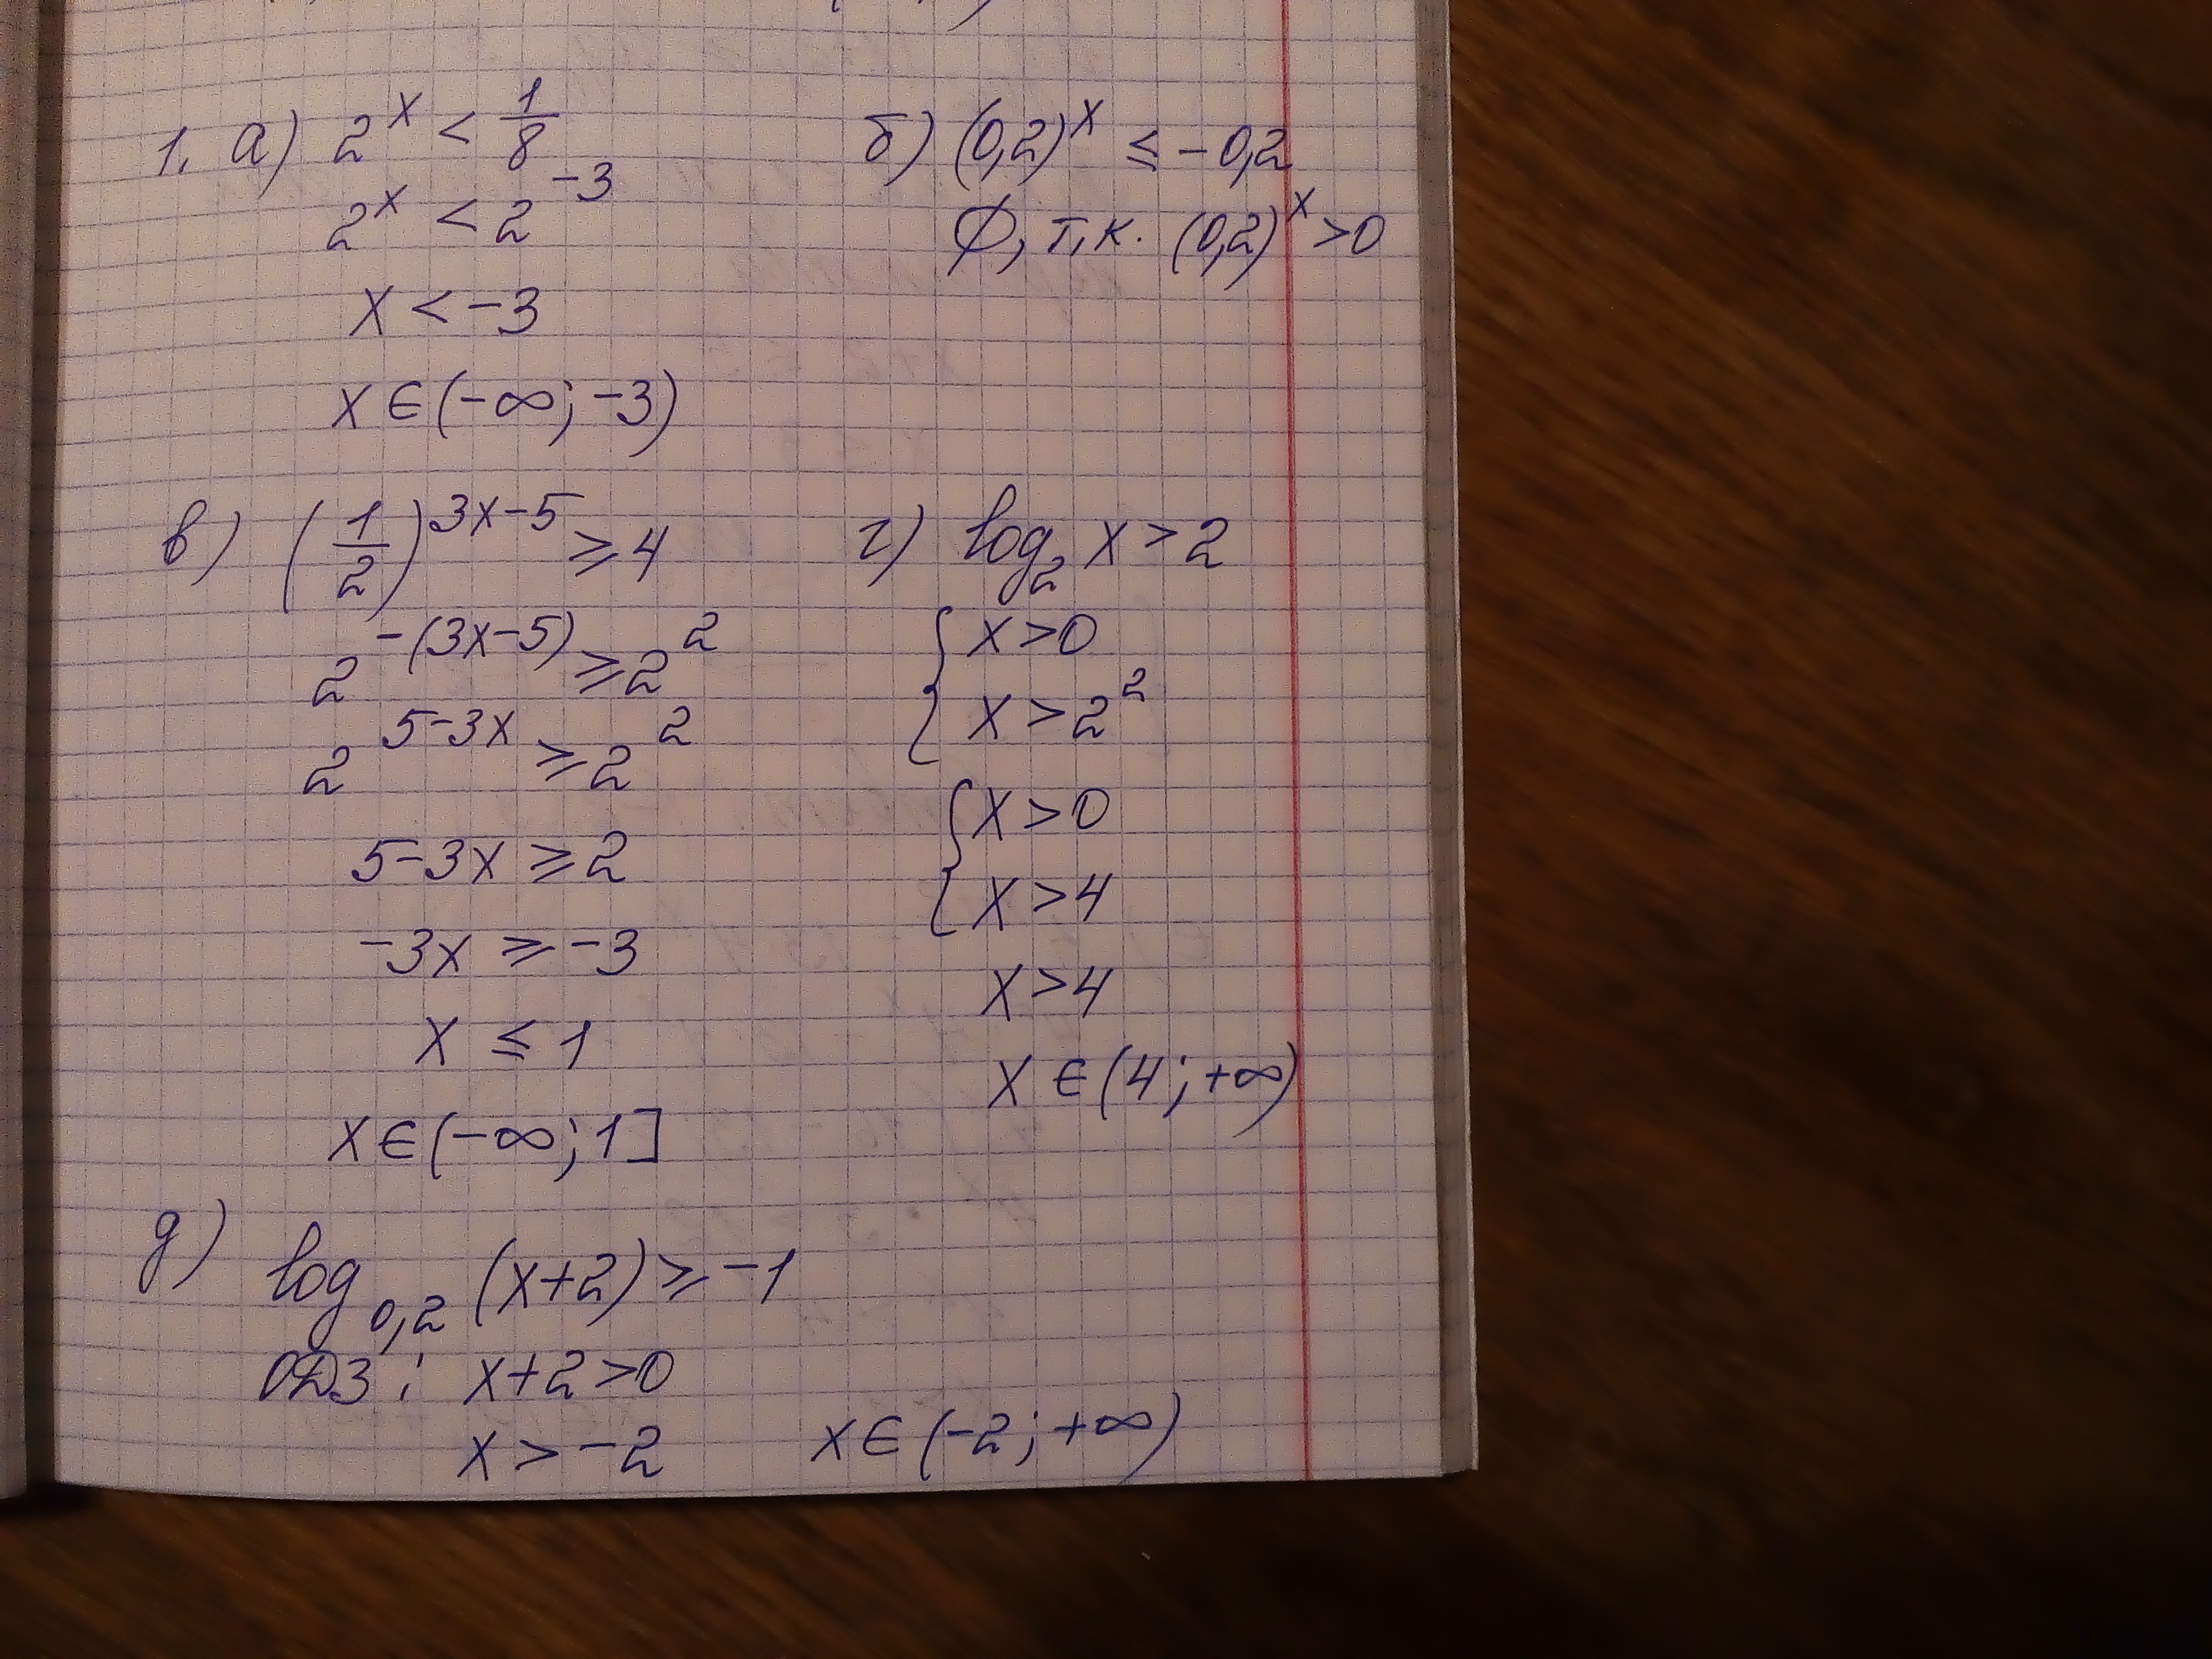 1. а) 2^x < 1/8
2^x < 2^-3
x < -3
x ∈ (-∞; -3)
б) (0,2)^x ≤ -0,2
∅, т.к. (0,2)^x > 0
в) (1/2)^3x-5 ≥ 4
2^-(3x-5) ≥ 2^2
2^5-3x ≥ 2^2
5-3x ≥ 2
-3x ≥ -3
x ≤ 1
x ∈ (-∞; 1]
г) log₂ x > 2
{ x > 0
x > 2^2
{ x > 0
x > 4
x > 4
x ∈ (4; +∞)
д) log₀,₂ (x+2) ≥ -1
ОДЗ: x+2 > 0
x > -2 x ∈ (-2; +∞)